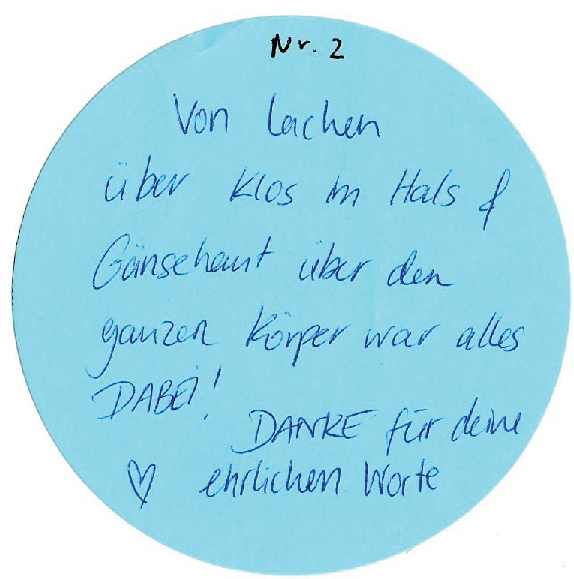 Nr. 2
Von Lachen
über Klos im Hals &
Gänsehaut über den
ganzen Körper war alles
DABEI!
DANKE für deine
♡ ehrlichen Worte